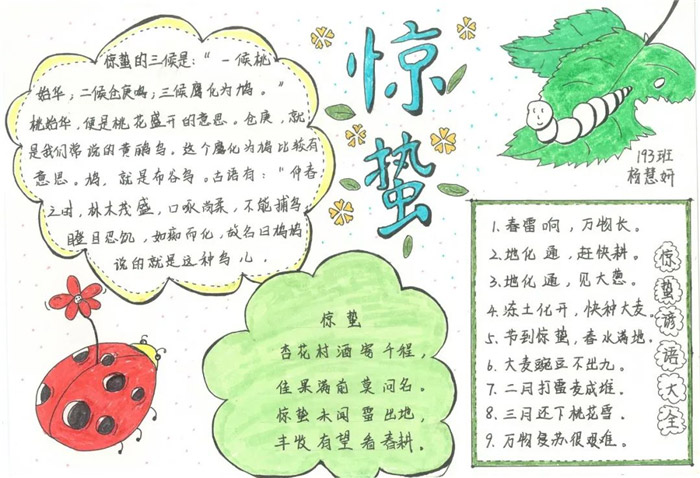 惊蛰
惊蛰的三候是：“一候桃
始华；二候仓庚鸣；三候鹰化为鸠。”
桃始华，便是桃花盛开的意思。仓庚，就
是我们常说的黄鹂鸟。这个鹰化为鸠比较有
意思。鸠，就是布谷鸟。古语有：“仲春
之时，林木茂盛，口啄尚柔，不能捕鸟
瞪目忍饥，如痴而化，故名曰鸤鸠
说的就是这种鸟儿。
193班
杨慧妍
惊蛰
杏花村酒寄千程，
佳果满前莫问名。
惊蛰未闻雷出地，
丰收有望看春耕。
惊蛰谚语大全
1.春雷响，万物长。
2.地化通，赶快耕。
3.地化通，见大葱。
4.冻土化开，快种大麦。
5.节到惊蛰，春水满地。
6.大麦豌豆不出九。
7.二月打雷麦成堆。
8.三月还下桃花雪。
9.万物复苏很艰难。